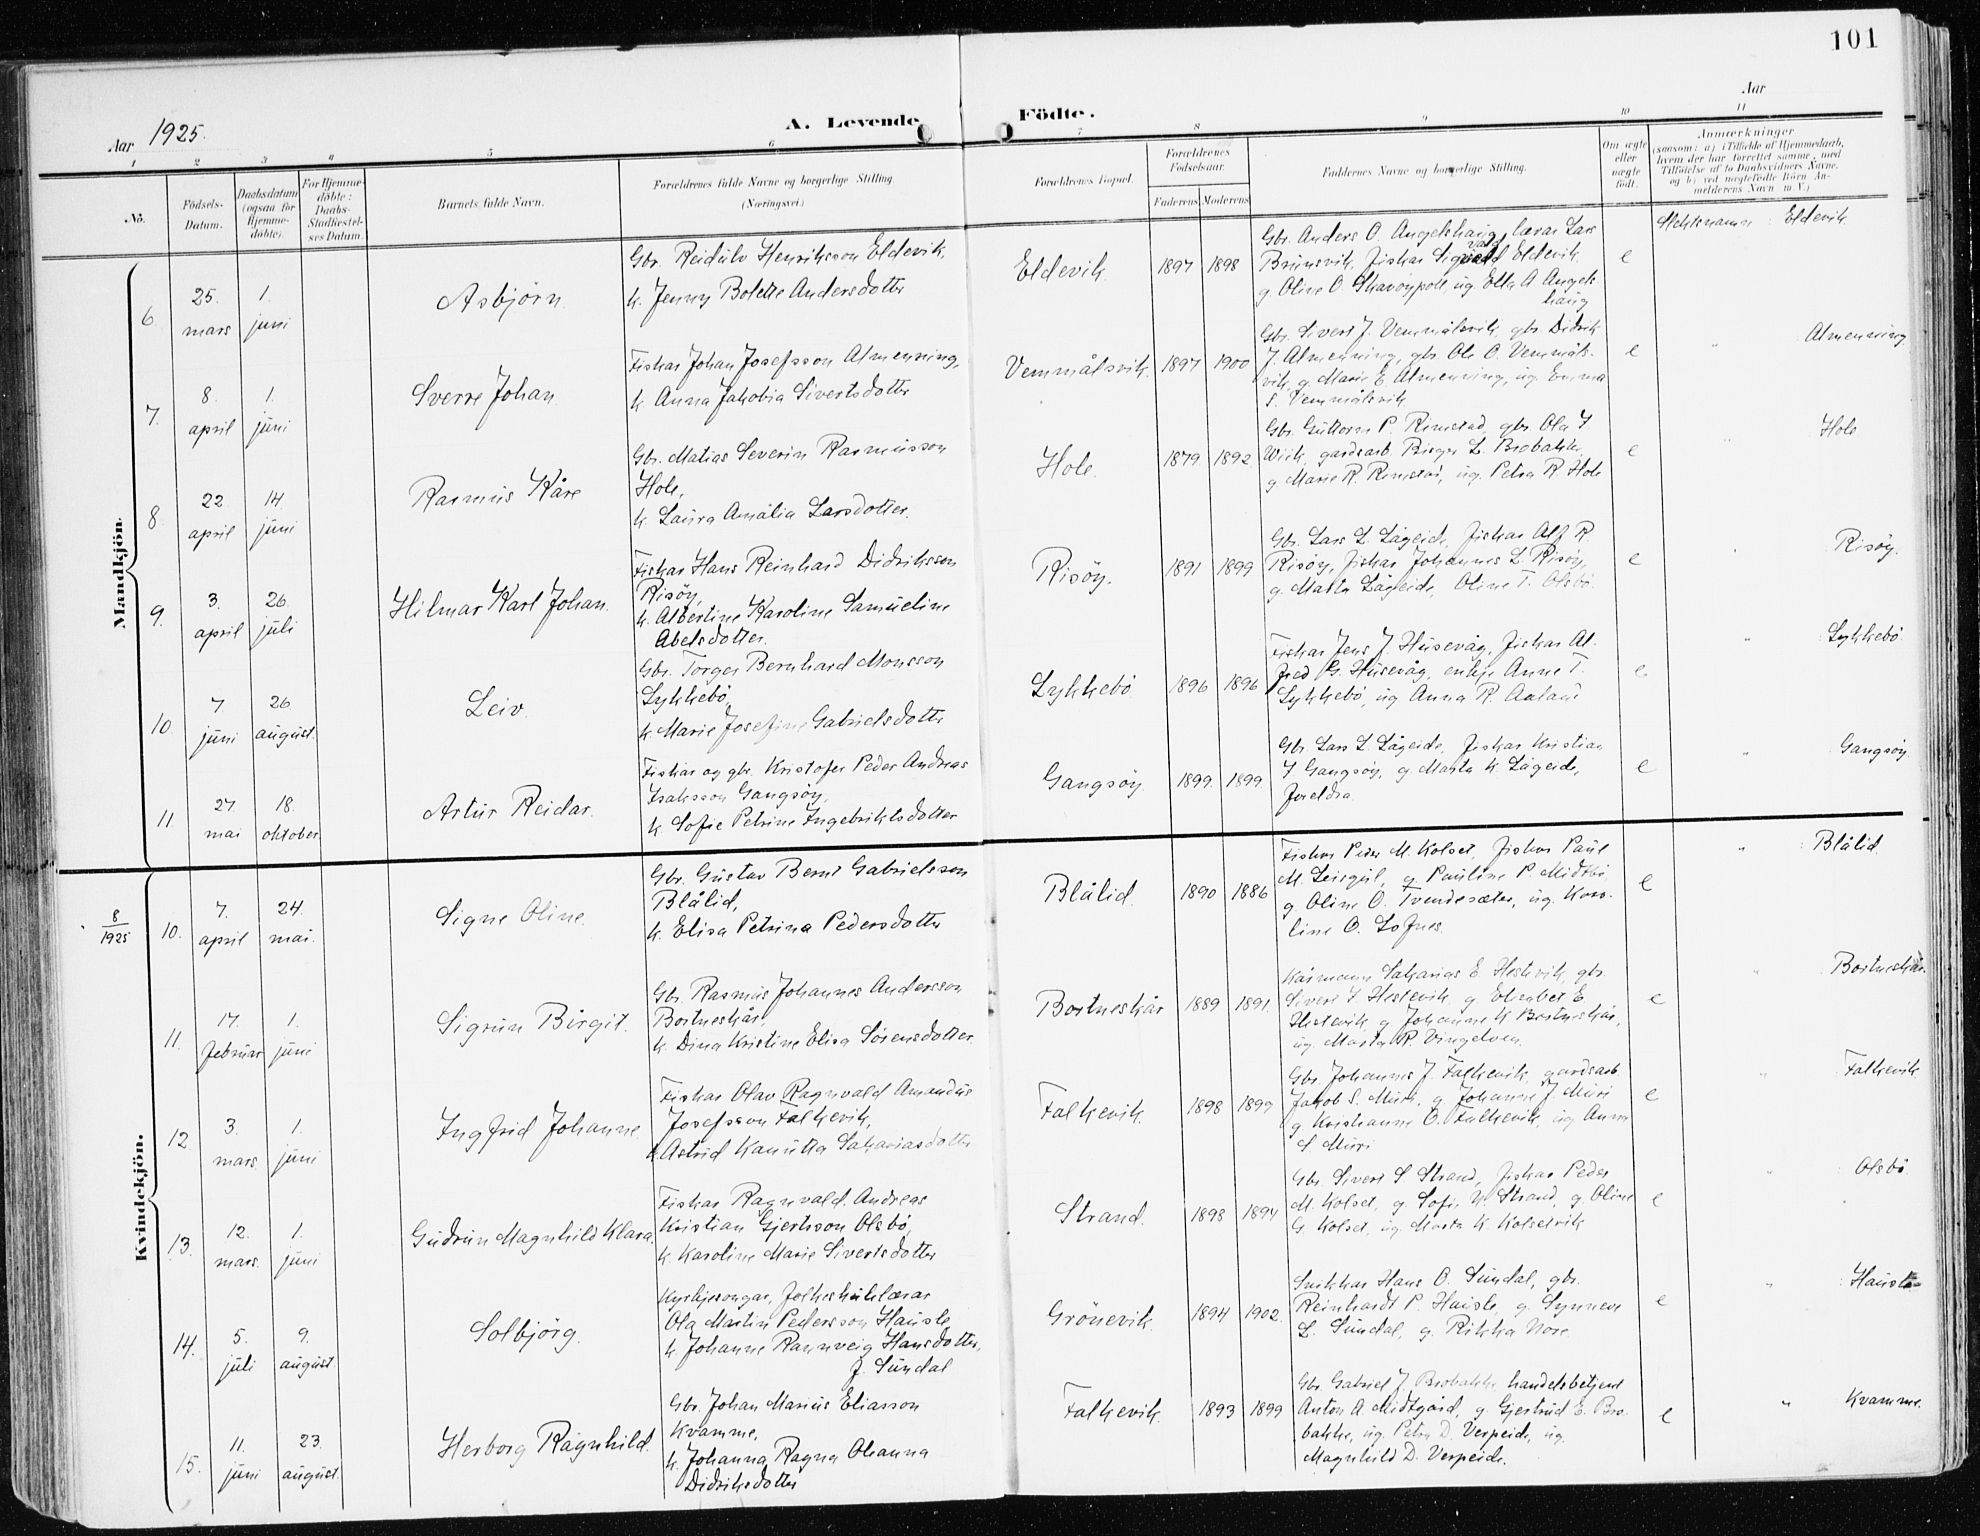 101
Aar 1925.
A. Levende Födte.
Aar
1 2 3 4 5 6 7 8 9 10 11
No.
Födsels-Datum.
Daabsdatum (ogsaa for Hjemme-döbte).
For Hjemme-döbte: Daabs-Stadfæstel-ses Datum.
Barnets fulde Navn.
Forældrenes fulde Navne og borgerlige Stilling. (Næringsvei.)
Forældrenes Bopæl.
Forældrenes Födselsaar.
Faderens Moderens
Faddernes Navne og borgerlige Stilling.
Om ægte eller uægte födt.
Anmærkninger
(saasom: a) i Tilfælde af Hjemmedaab,
hvem der har forrettet samme, med
Tilföielse af to Daabsvidners Navne,
og b) ved uægtefödte Börn An-
melderens Navn m. V.)
Mandkjön.
6. 25. mars 1. juni
Asbjörn.
Gbr. Reidulv Henriksson Eldevik,
k. Jenny Bolette Andersdotter
Eldevik. 1897 1898
Gbr. Anders O. Angelshaug, lærar Lars
Brunsvik, fiskar Sigvald Eldevik,
g. Oline O. Skavöypoll, ug. Ella A Angels-
haug
e
Slektsnamn: Eldevik
7. 8. april 1. juni
Sverre Johan.
Fiskar Johan Josefsson Almenning,
k. Anna Jakobia Sivertsdotter
Vemmålsvik. 1897 1900
Gbr. Sivert J. Vemmålsvik gbr. Didrik
J. Almenning, gbr. Ole O. Vemmåls-
vik, g. Marie E. Almenning, ug. Emma
S. Vemmålsvik
e
" Almenning
8. 22 april 14. juni
Rasmus Kåre
Gbr. Matias Severin Rasmusson
Hole,
k. Laura Amalia Larsdotter.
Hole. 1879 1892
Gbr. Guttorm P. Rimstad, gbr. Ola I
Wiik, gardsarb. Birger L. Brobakke,
g. Marie R. Rimstad, ug. Petra R. Hole
e
" Hole
9. 3. april 26. juli
Hilmar Karl Johan.
Fiskar Hans Reinhard Didriksson
Risöy,
k. Albertine Karoline Samueline
Abelsdotter.
Risöy. 1891 1899
Gbr. Lars L. Lågeide, fiskar Alf R.
Risöy, fiskar Johannes L. Risöy,
g. Marta Lågeide, Oline T. Olsbö.
e
" Risöy.
10. 7. juni 26. august.
Leiv.
Gbr. Torger Bernhard Monsson
Lykkebö,
k. Marie Josefine Gabrielsdotter
Lykkebö 1896 1896
Fiskar Jens J. Husevåg, fiskar Al-
fred G. Husevåg, enkje Anne T.
Lykkebö, ug Anna R. Aaland
e
" Lykkebö
11. 27. mai 18. oktober
Artur Reidar.
Fiskar og gbr. Kristofer Peder Andreas
Isaksson Gangsöy,
k. Sofie Petrine Ingebriktsdotter
Gangsöy. 1899. 1899.
Gbr. Lars L. Lågeide, fiskar Kristian
I Gangsöy, g. Marta K. Lågeide,
foreldra.
e
" Gangsöy.
Kvindekjön.
8/1925
10. 7. april 24. mai.
Signe Oline.
Gbr. Gustav Bernt Gabrielsson
Blålid,
k. Elisa Petrina Pedersdotter
Blålid. 1890 1886
Fiskar Peder M. Kolset, fiskar Paul
M. Leirgul, g. Pauline P. Midtbö,
g Oline O. Tvendesæter, ug. Karo-
line O. Lofnes.
e
" Blålid.
11. 17. februar 1. juni
Sigrun Birgit.
Gbr. Rasmus Johannes Andersson
Bortneskår,
k. Dina Kristine Elisa Sörensdotter
Bortneskår 1889 1891.
Kårmann Sakarias E Hestvik, gbr.
Sivert I Hestevik, g Elisabet E.
Hestevik, g Johanne K Bortneskår,
ug. Marta R. Vingelven.
e
" Bortneskår.
12. 3. mars 1. juni
Ingfrid Johanne.
Fiskar Olav Ragnvald Amandus
Josefsson Falkevik,
k. Astrid Kanutta Sakariasdotter
Falkevik. 1898 1899
Gbr. Johannes J. Falkevik, gardsarb
Jakob S. Muri, g Johanne J Muri
g. Kristianne O. Falkevik, ug Anna
S Muri
e
" Falkevik
13. 12. mars. 1. juni
Gudrun Magnhild Klara.
Fiskar Ragnvald. Andreas
Kristian Gjertsson Olsbö,
k. Karoline Marie Sivertsdotter
Strand. 1898 1894
Gbr. Sivert S Strand, fiskar Peder
M. Kolset, g Sofie N. Strand, g. Oline
G. Kolset, ug. Marta K. Kolsetvik
e
" Olsbö
14. 5. juli 9. august
Solbjörg.
Kyrkjesongar, folkeskulelærar
Ola Martin Pedersson Hausle,
k. Johanne Rannveig Hansdotter,
f. Sundal
Grönevik. 1894 1902.
Snikkar Hans O. Sundal, gbr.
Reinhardt P. Hausle, g. Synneve
L. Sundal, g. Rikka Nore.
e
" Hausle
15. 11. juni 23. august.
Herborg Ragnhild.
Gbr. Johan Marius Eliasson
Kvamme,
k. Johanna Ragna Oleanna
Didriksdotter
Falkevik. 1893 1899
Gbr. Gabriel J. Brobakke handelsbetjent
Anton A. Midtgård, g. Gjertrud E. Bro-
bakke, ug. Petra D. Verpeide, ug.
Magnhild D. Verpeide.
e
" Kvamme.